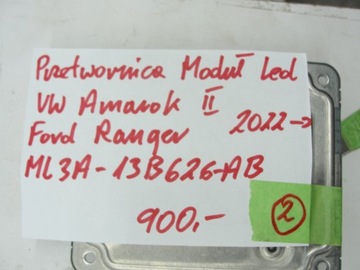 Przetwornica Moduł Led
VW Amarok II
Ford Ranger 2022→
ML3A-13B626-AB
900,-
2